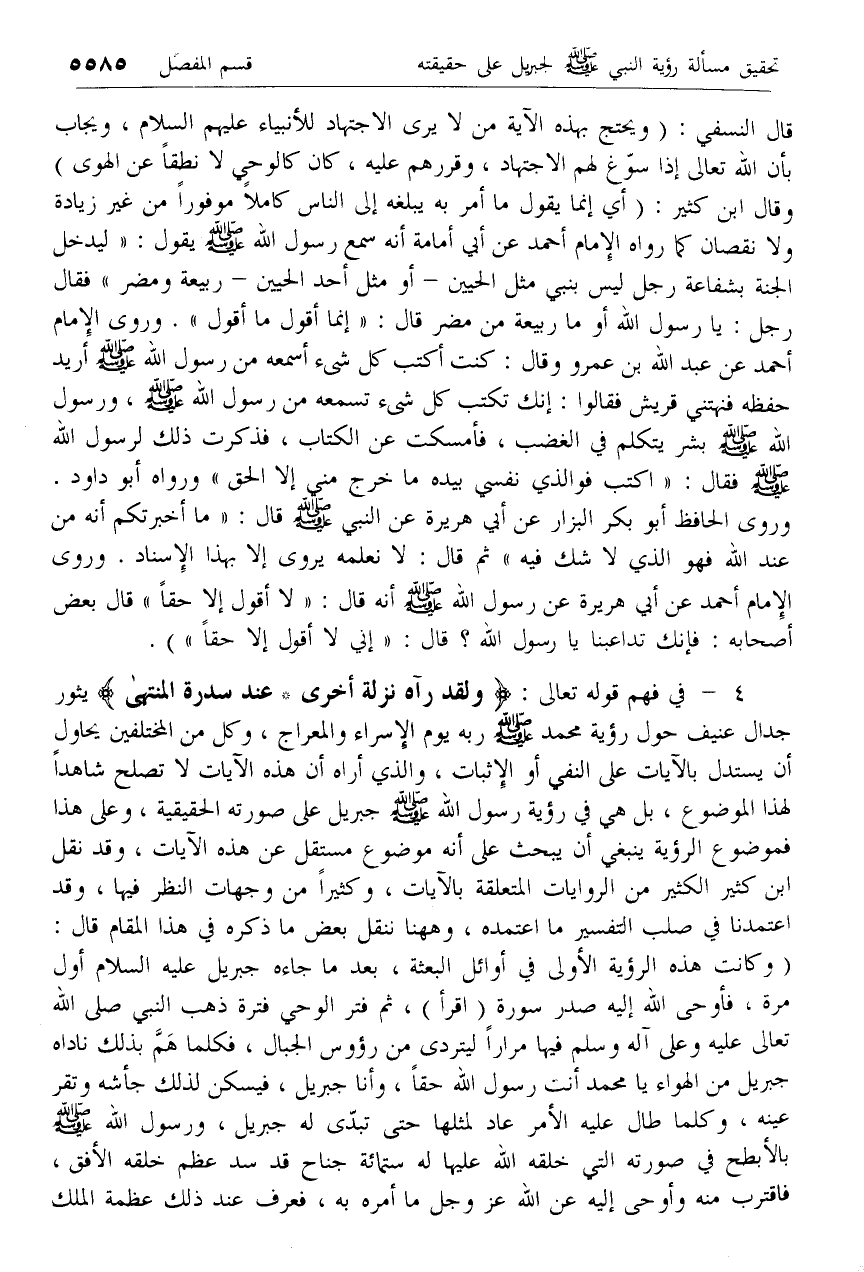 تحقيق مسألة رؤية النبي ﷺ لجبريل على حقيقته قسم المفصَل ٥٥٨٥
قال النسفي : ( ويحتج بهذه الآية من لا يرى الاجتهاد للأنبياء عليهم السلام ، ويجاب
بأن الله تعالى إذا سوّغ لهم الاجتهاد ، وقررهم عليه ، كان كالوحي لا نطقاً عن الهوى )
وقال ابن كثير : ( أي إنما يقول ما أمر به يبلغه إلى الناس كاملاً موفوراً من غير زيادة
ولا نقصان كما رواه الإمام أحمد عن أبي أمامة أنه سمع رسول الله ﷺ يقول : « ليدخل
الجنة بشفاعة رجل ليس بنبي مثل الحيين – أو مثل أحد الحيين – ربيعة ومضر » فقال
رجل : يا رسول الله أو ما ربيعة من مضر قال : « إنما أقول ما أقول » . وروى الإمام
أحمد عن عبد الله بن عمرو وقال : كنت أكتب كل شىء أسمعه من رسول الله ﷺ أريد
حفظه فنهتني قريش فقالوا : إنك تكتب كل شىء تسمعه من رسول الله ﷺ ، ورسول
الله ﷺ بشر يتكلم في الغضب ، فأمسكت عن الكتاب ، فذكرت ذلك لرسول الله
ﷺ فقال : « اكتب فوالذي نفسي بيده ما خرج مني إلا الحق » ورواه أبو داود .
وروى الحافظ أبو بكر البزار عن أبي هريرة عن النبي ﷺ قال : « ما أخبرتكم أنه من
عند الله فهو الذي لا شك فيه » ثم قال : لا نعلمه يروى إلا بهذا الإسناد . وروى
الإمام أحمد عن أبي هريرة عن رسول الله ﷺ أنه قال : « لا أقول إلا حقاً » قال بعض
أصحابه : فإنك تداعبنا يا رسول الله ؟ قال : « إني لا أقول إلا حقاً » ) .
٤ – في فهم قوله تعالى : ﴿ ولقد رآه نزلة أخرى * عند سدرة المنتهىٰ ﴾ يثور
جدال عنيف حول رؤية محمد ﷺ ربه يوم الإسراء والمعراج ، وكل من المختلفين يحاول
أن يستدل بالآيات على النفي أو الإثبات ، والذي أراه أن هذه الآيات لا تصلح شاهداً
لهذا الموضوع ، بل هي في رؤية رسول الله ﷺ جبريل على صورته الحقيقية ، وعلى هذا
فموضوع الرؤية ينبغي أن يبحث على أنه موضوع مستقل عن هذه الآيات ، وقد نقل
ابن كثير الكثير من الروايات المتعلقة بالآيات ، وكثيراً من وجهات النظر فيها ، وقد
اعتمدنا في صلب التفسير ما اعتمده ، وههنا ننقل بعض ما ذكره في هذا المقام قال :
( وكانت هذه الرؤية الأولى في أوائل البعثة ، بعد ما جاءه جبريل عليه السلام أول
مرة ، فأوحى الله إليه صدر سورة ( اقرأ ) ، ثم فتر الوحي فترة ذهب النبي صلى الله
تعالى عليه وعلى آله وسلم فيها مراراً ليتردى من رؤوس الجبال ، فكلما هَمَّ بذلك ناداه
جبريل من الهواء يا محمد أنت رسول الله حقاً ، وأنا جبريل ، فيسكن لذلك جأشه وتقر
عينه ، وكلما طال عليه الأمر عاد لمثلها حتى تبدّى له جبريل ، ورسول الله ﷺ
بالأبطح في صورته التي خلقه الله عليها له ستمائة جناح قد سد عظم خلقه الأفق ،
فاقترب منه وأوحى إليه عن الله عز وجل ما أمره به ، فعرف عند ذلك عظمة الملك